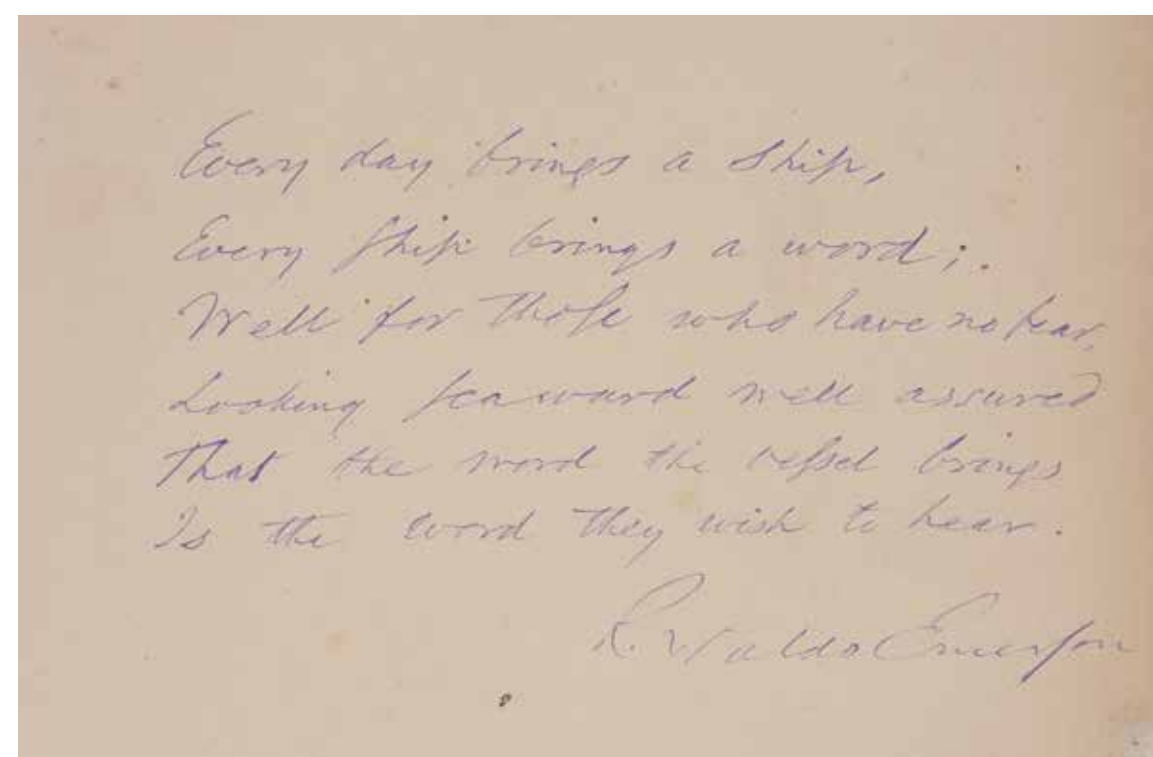 Every day brings a ship,
Every ship brings a word;
Well for those who have no fear,
Looking seaward well assured
That the word the vessel brings
Is the word they wish to hear.
R. Waldo Emerson